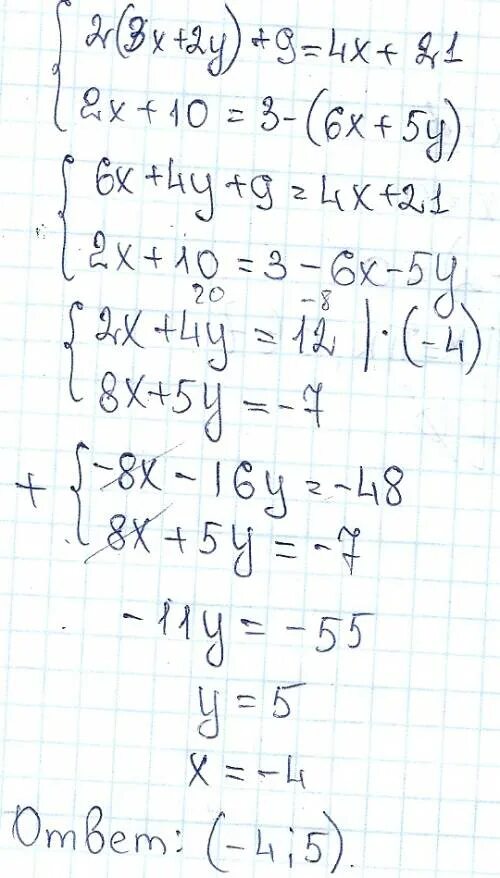 2(3x+2y)+9=4x+21
2x+10=3-(6x+5y)
6x+4y+9=4x+21
2x+10=3-6x-5y
20 -8
2x+4y=12 |·(-4)
8x+5y=-7
+ -8x-16y=-48
8x+5y=-7
-11y=-55
y=5
x=-4
Ответ: (-4;5).